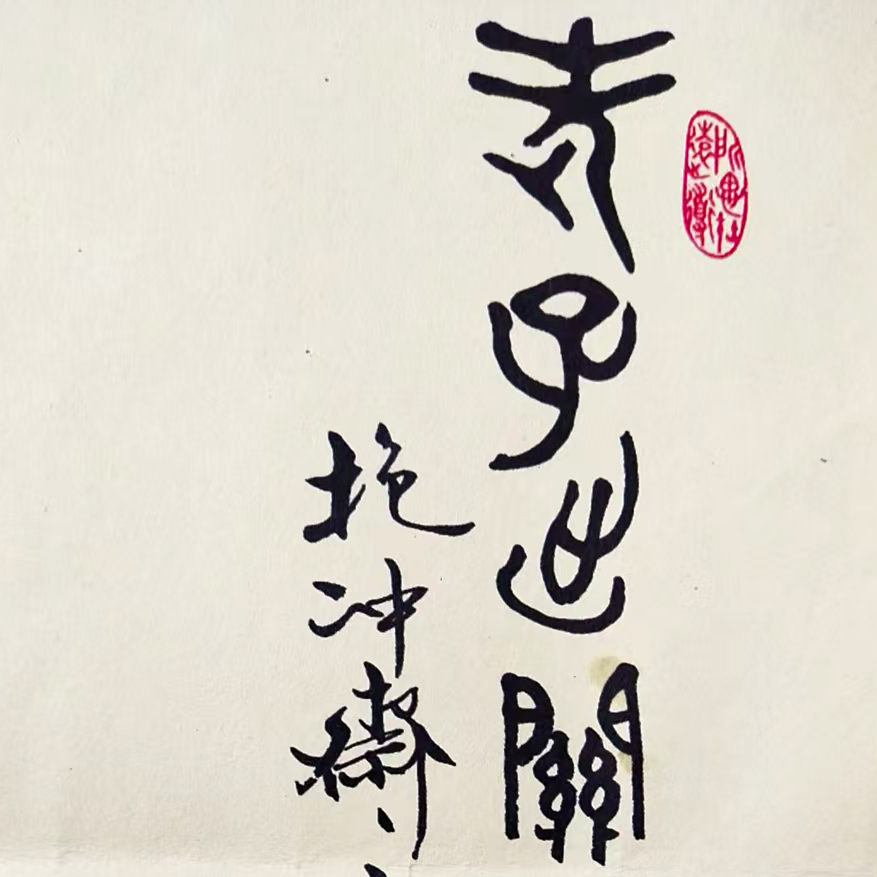 老子出關
抱冲齋